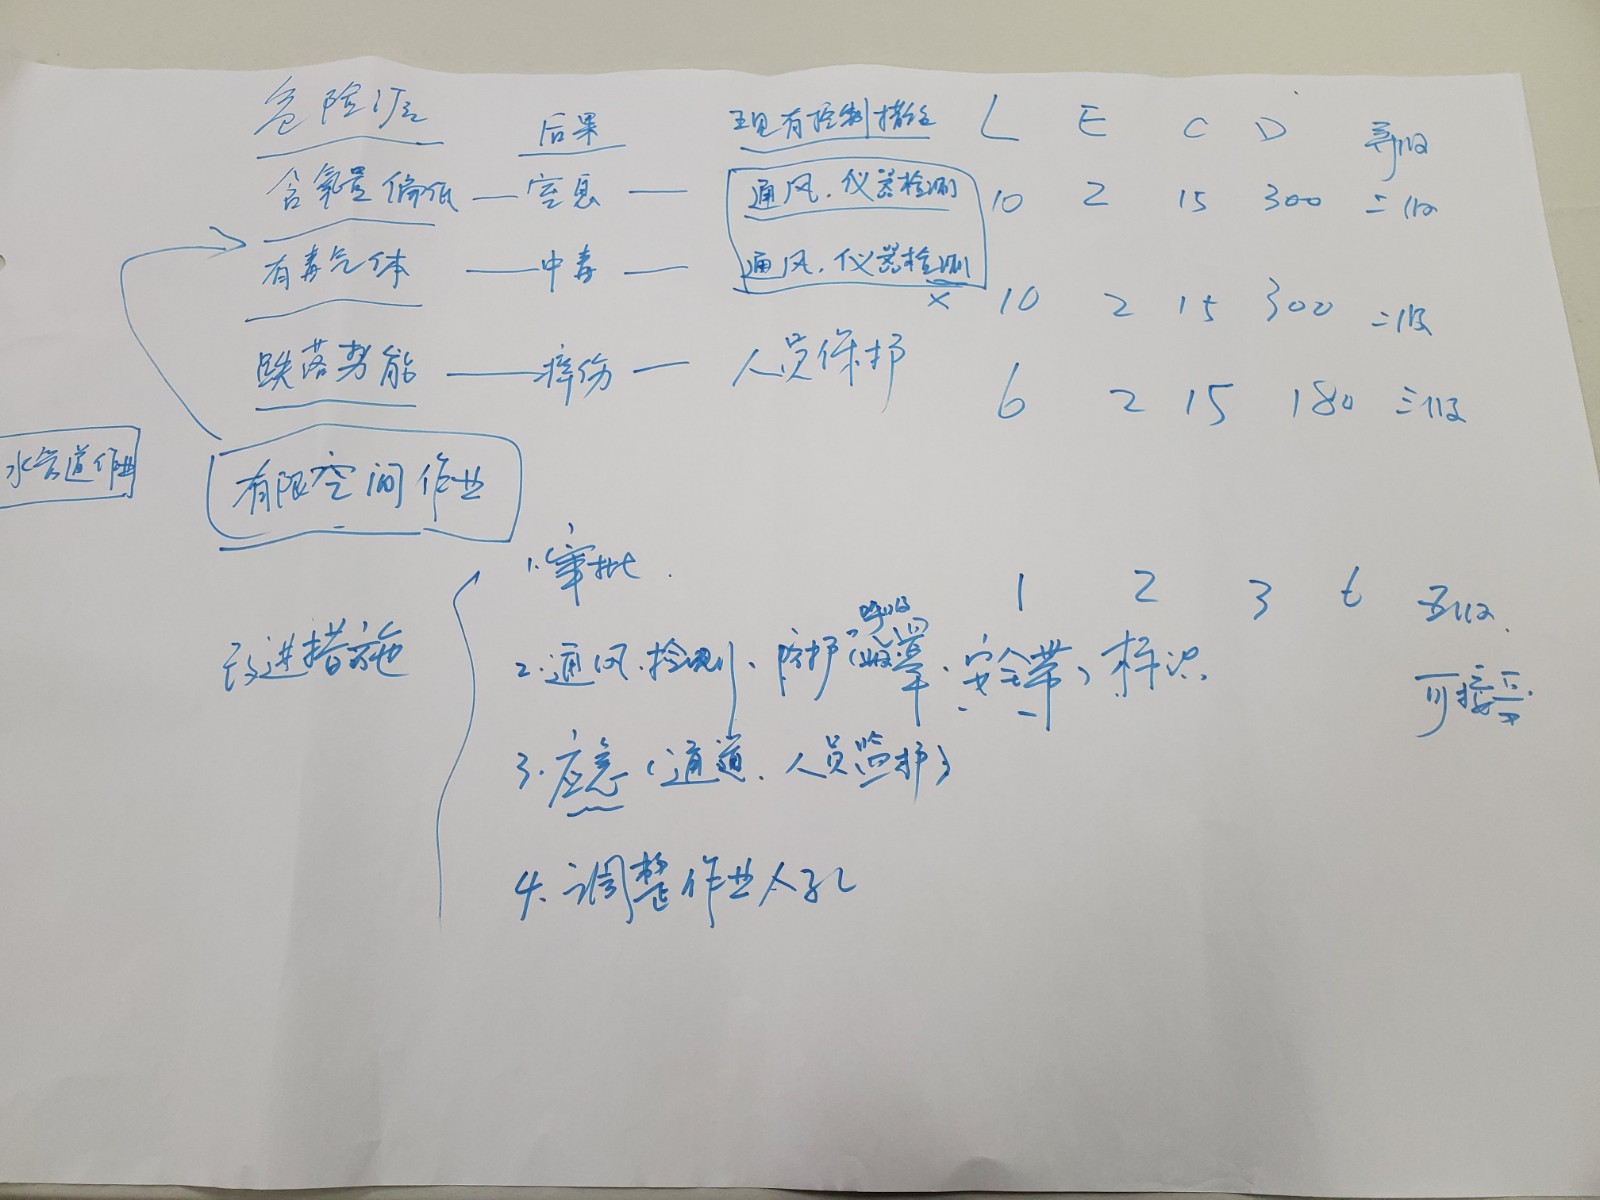 危险源 后果 现有控制措施 L E C D 等级
含氧量偏低 — 窒息 — 通风、仪器检测 10 2 15 300 二级
有毒气体 — 中毒 — 通风、仪器检测 × 10 2 15 300 二级
跌落势能 — 摔伤 — 人员保护 6 2 15 180 三级
水管道作业
有限空间作业
改进措施
1.审批. 1 2 3 6 五级.
呼吸
2.通风、检测、防护( 安全带、标识 可接受.
3.应急(通道、人员监护)
4.调整作业人孔